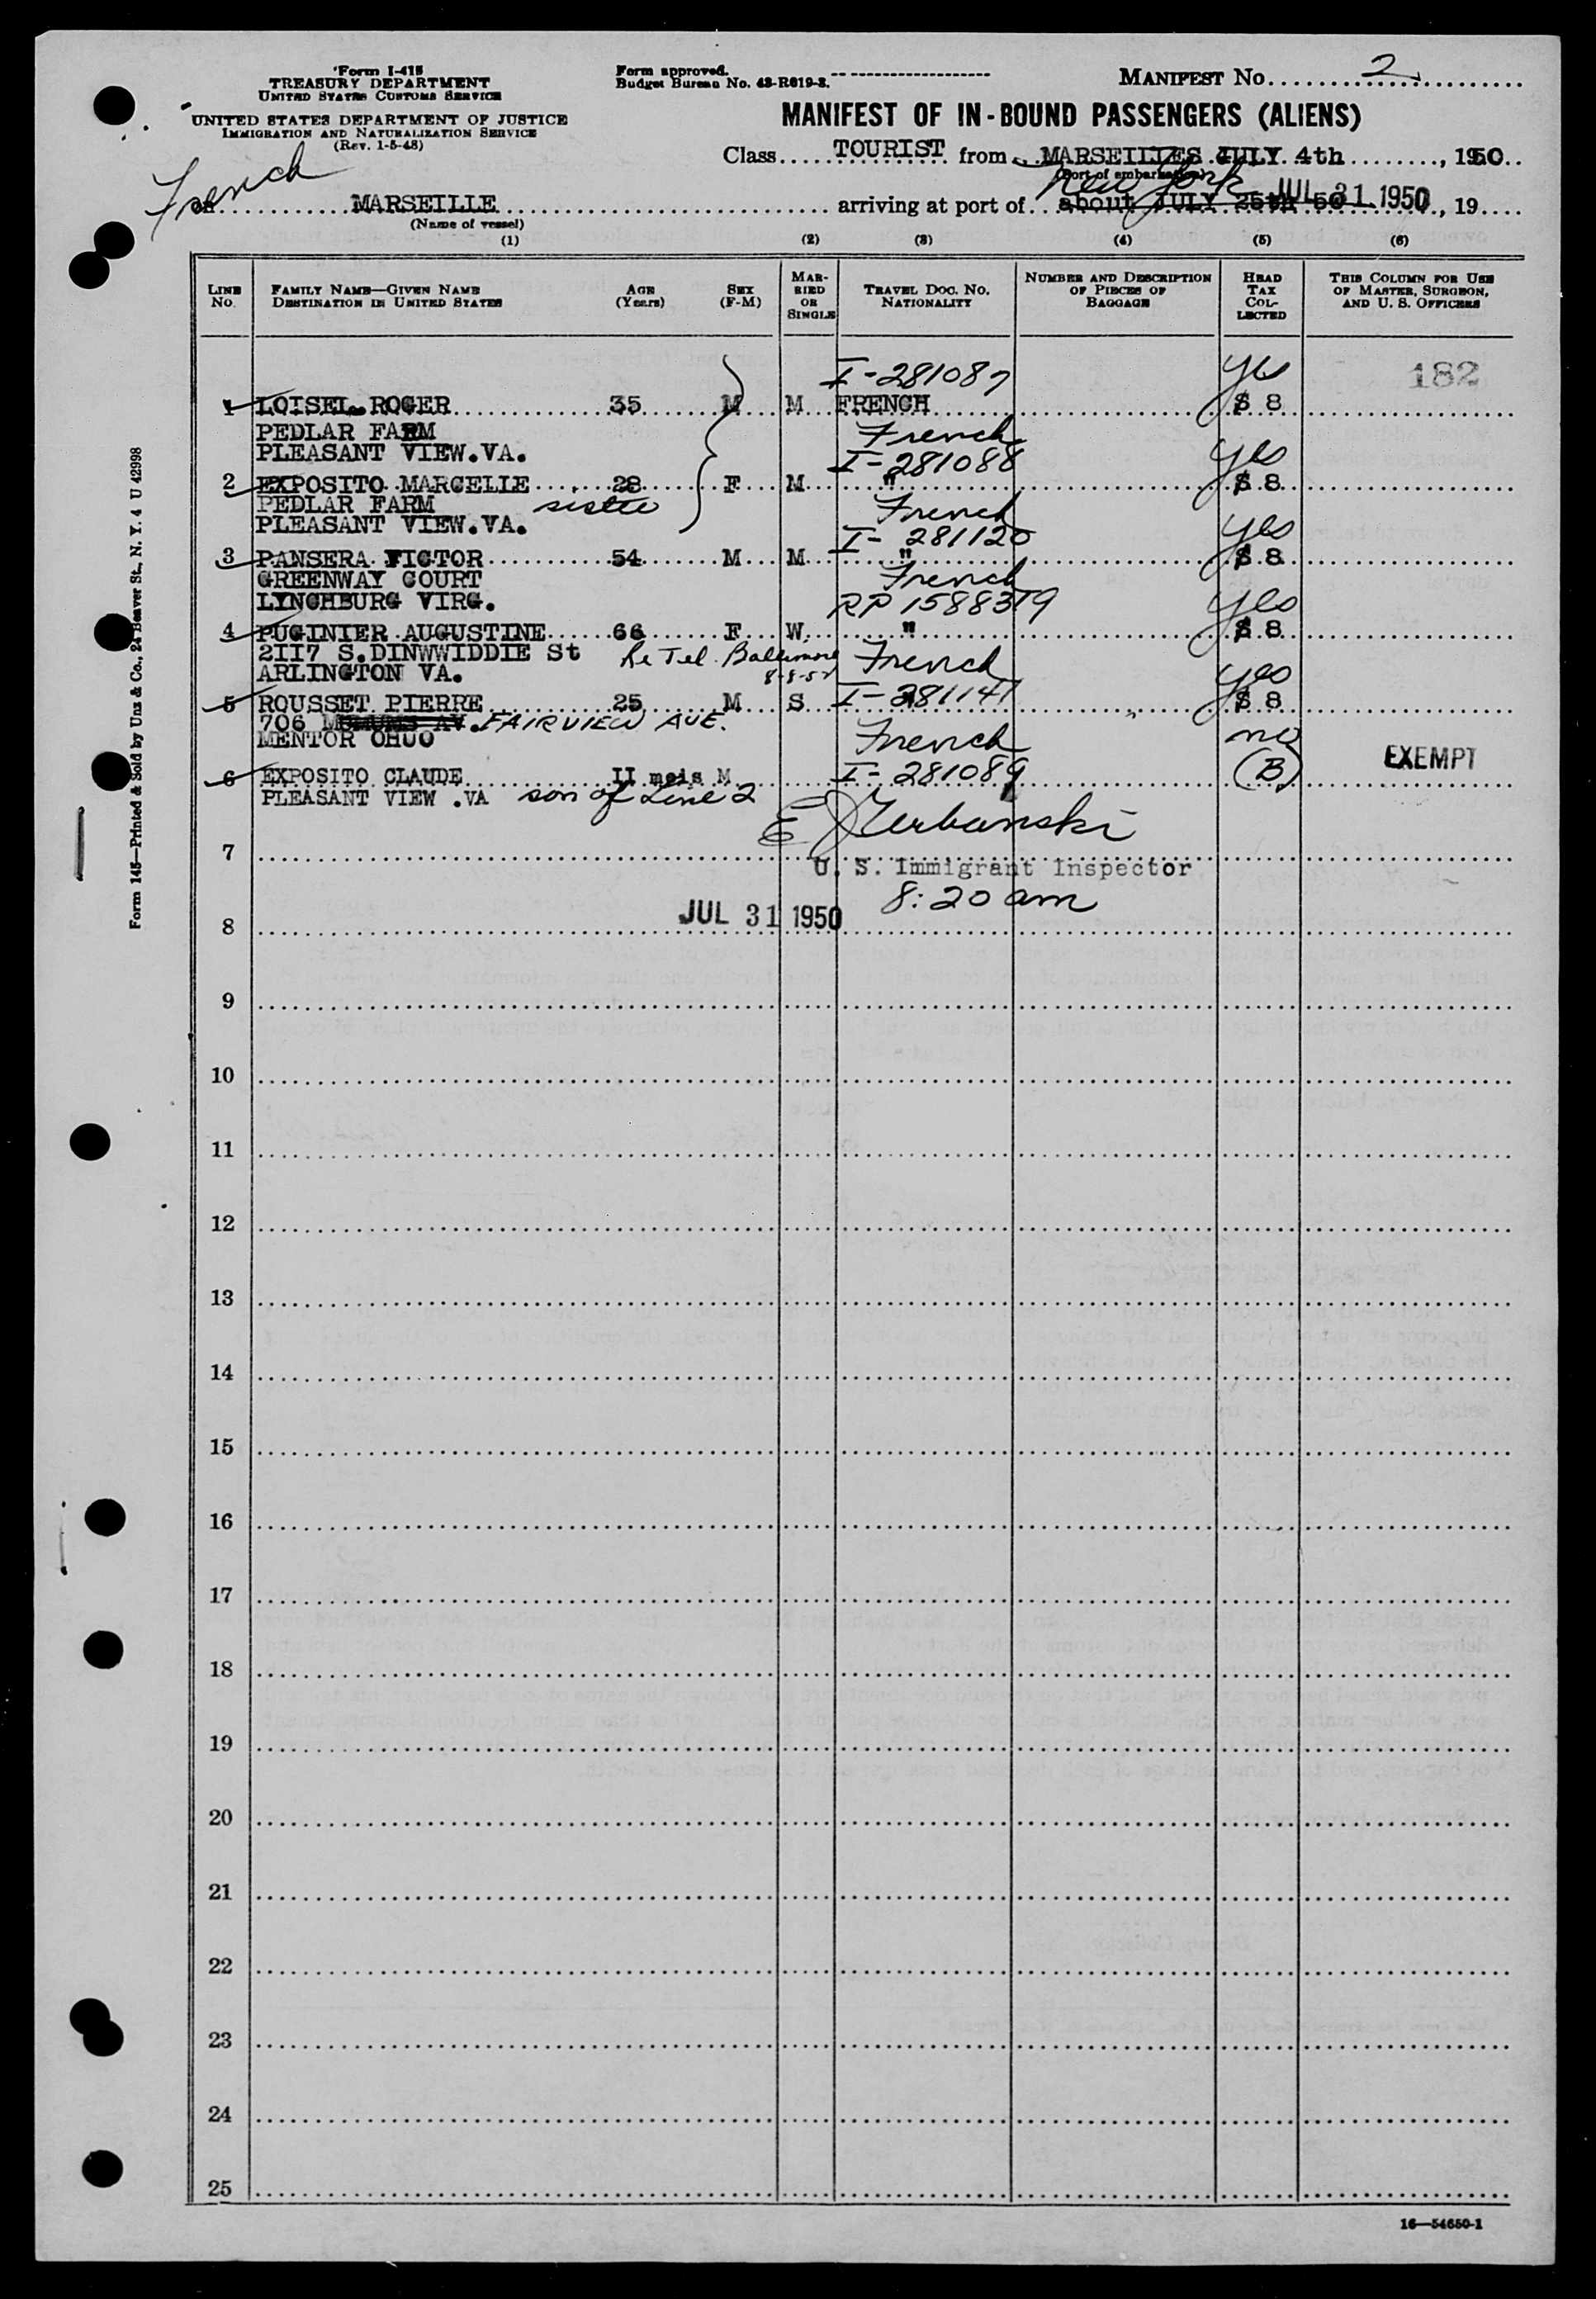 Form I-415
TREASURY DEPARTMENT
UNITED STATES CUSTOMS SERVICE
UNITED STATES DEPARTMENT OF JUSTICE
IMMIGRATION AND NATURALIZATION SERVICE
(Rev. 1-5-48)
Form approved.
Budget Bureau No. 43-R619-2.
MANIFEST No. 2
MANIFEST OF IN-BOUND PASSENGERS (ALIENS)
Class TOURIST from MARSEILLES JULY 4th, 1950
(Port of embarkation)
French
on MARSEILLE arriving at port of New York about JULY 25th 50 JUL 31 1950, 19
(Name of vessel)
(1) (2) (3) (4) (5) (6)
LINE No. FAMILY NAME—GIVEN NAME DESTINATION IN UNITED STATES AGE (Years) SEX (F-M) MARRIED OR SINGLE TRAVEL DOC. NO. NATIONALITY NUMBER AND DESCRIPTION OF PIECES OF BAGGAGE HEAD TAX COLLECTED THIS COLUMN FOR USE OF MASTER, SURGEON, AND U. S. OFFICERS
I-281087 yes 182
1 LOISEL ROGER 35 M M FRENCH $ 8
PEDLAR FARM French
PLEASANT VIEW.VA. I-281088 yes
2 EXPOSITO MARCELLE 28 F M " $ 8
PEDLAR FARM sister French
PLEASANT VIEW.VA. I-281120 yes
3 PANSERA VICTOR 54 M M " $ 8
GREENWAY COURT French
LYNCHBURG VIRG. RP 1588379 yes
4 PUGINIER AUGUSTINE 66 F W. " $ 8
2II7 S.DINWWIDDIE St Re Tel. Baltimore French
ARLINGTON VA. 8-8-52 yes
5 ROUSSET PIERRE 25 M S I-281141 $ 8
706 FAIRVIEW AVE.
MENTOR OHUO French no
6 EXPOSITO CLAUDE II mois M I-281089 (B) EXEMPT
PLEASANT VIEW .VA son of Line 2
E J Urbanski
7
U. S. Immigrant Inspector
8:20 am
8 JUL 31 1950
9
10
11
12
13
14
15
16
17
18
19
20
21
22
23
24
25
16—54650-1
Form 145—Printed & Sold by Unz & Co., 24 Beaver St., N. Y. 4 U 42998